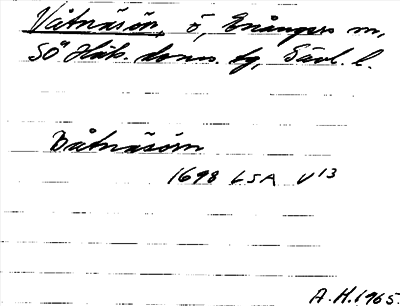 Våtnäsön, ö, Enångers sn,
SÖ Häls. doms. tg, Gävl. l.
Båtnäsörn
1698 LSA U 13
A.H. 1965.